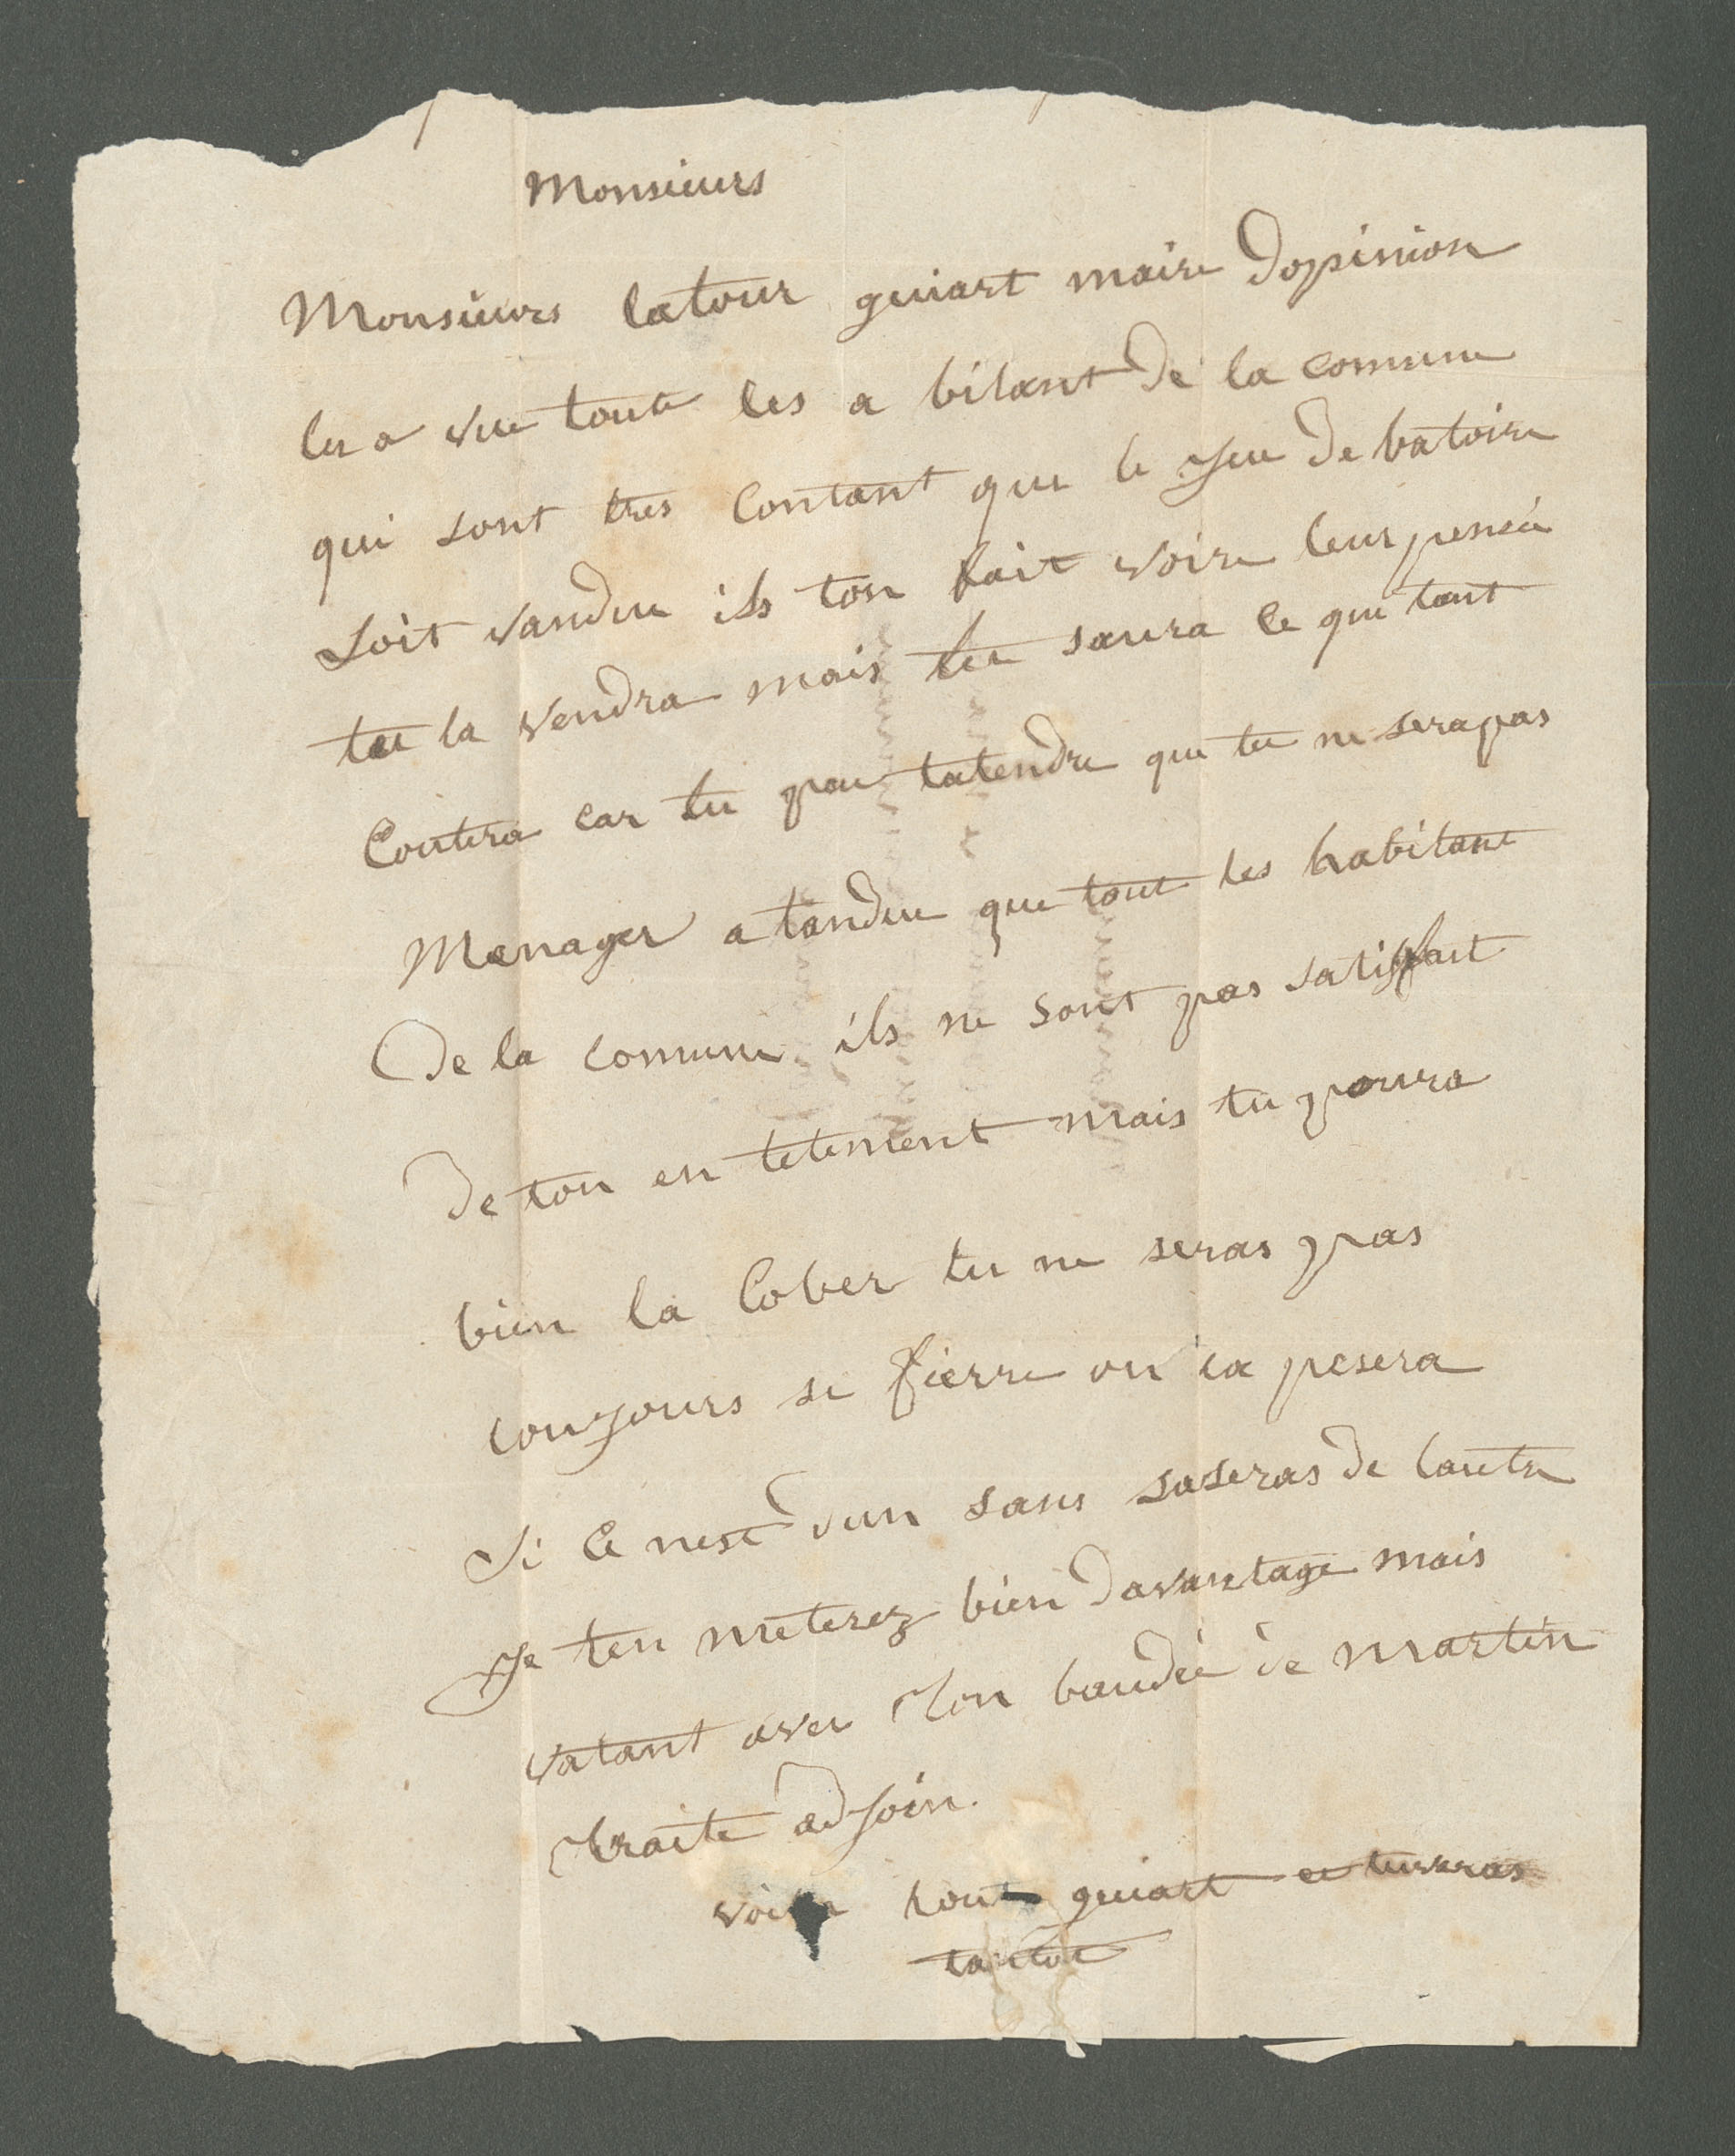 Monsieurs
Monsieurs latour guiart maire dopinion
tu a vue toute les a bitant de la comune
qui sont tres contant que le jeu de batoire
soit vandue ils ton fait voire leur pensée
tu la vendra mais tu saura ce que tant
coutera car tu peu tatendre que tu ne sera pas
Menager a tandue que tout les habitant
De la comune ils ne sont pas satisfait
De ton en tetement mais tu poura
bien la Gober tu ne seras pas
toujours si fierre on ca pesera
si ce nest dun sans saseras de lautre
Je ten meterez bien davantage mais
vatant avec ton baudée de martin
traite adjoin.
tout guiart et tu veras
tantot